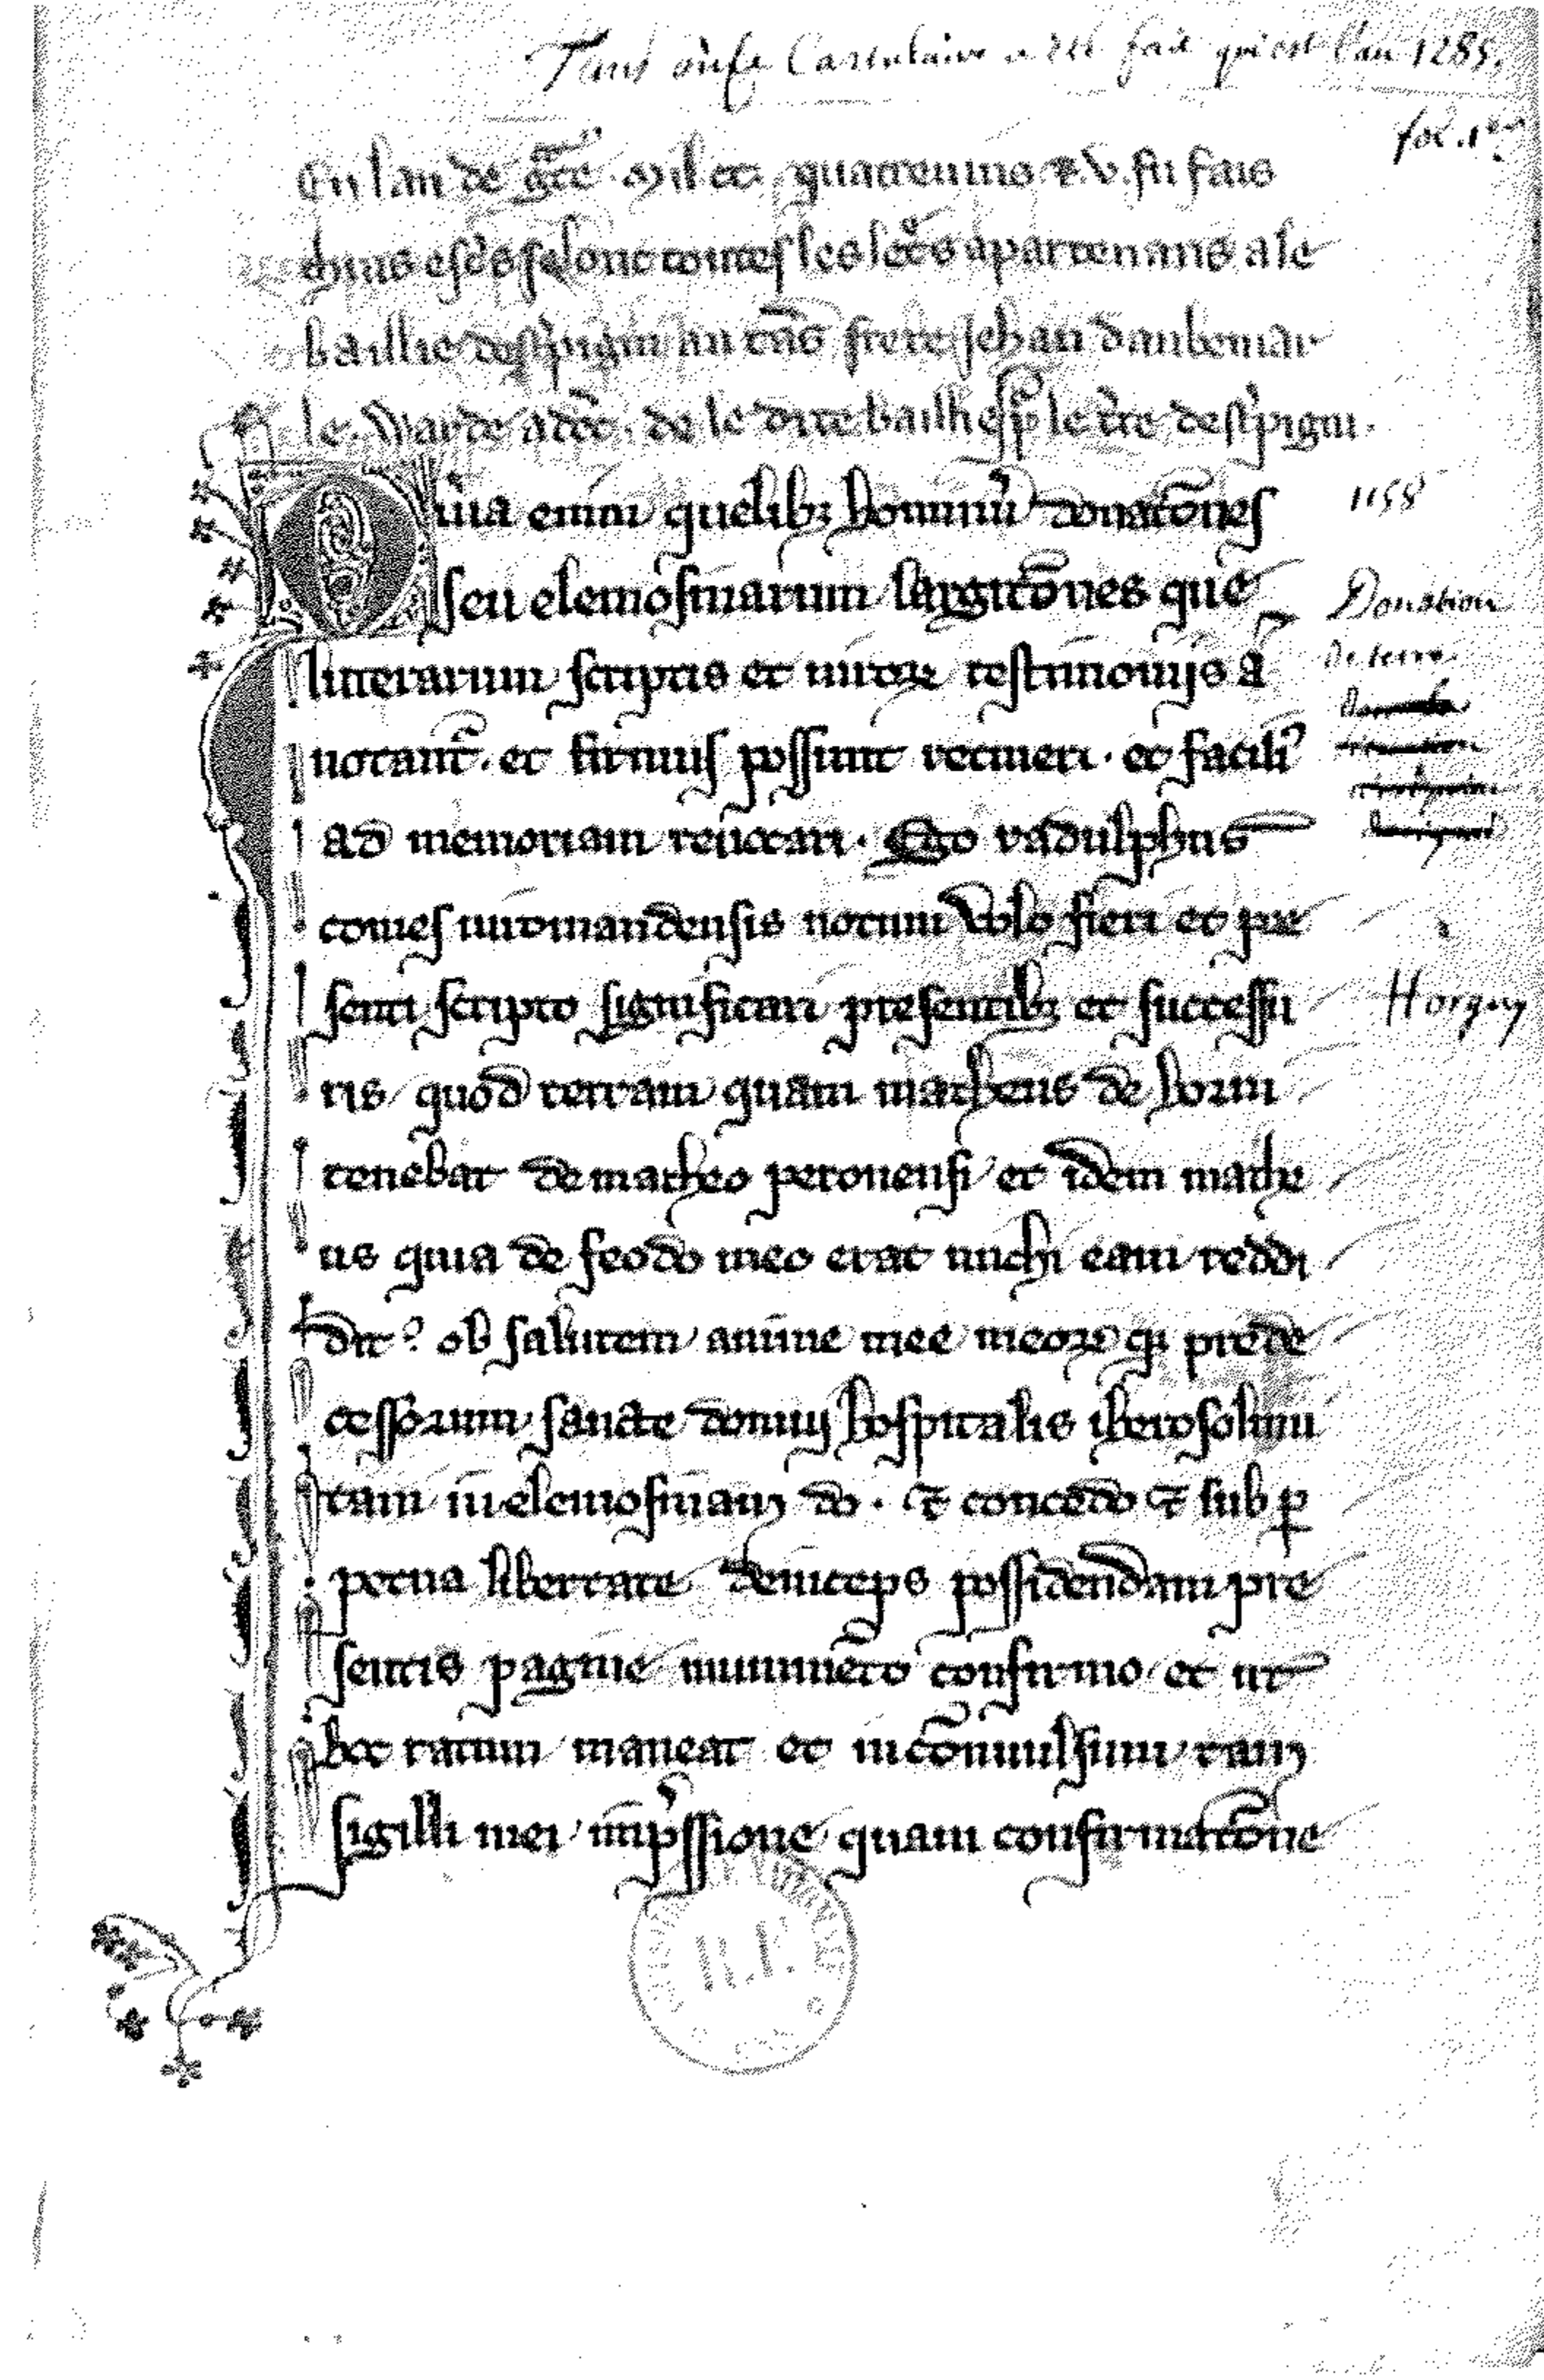 Cartulaire a été fait qui est l'an 1285.
fol. 1er
En lan de gr̃ce. Mil cc. quatreuins ⁊ .v. fu fais
selonc toutes les lr̃es apartenans a le
baillie destpigni au tãs frere Jehan daubemar
le. Warde adõc. de le dite baillie
Quia enim quelibꝫ hominũ donatõnes
1158
seu elemosinarum largitõnes que
Donation
litterarum scriptis et uirorꝝ testimonijs a
de terre
notant᷑. et firmius possunt retineri. et facili᷒
ad memoriam reuocari. Ego radulphus
comes uiromandensis notum volo fieri et pre
senti scripto significari presentibꝫ et successu
Horgny
ris quod terram quam matheus de horni
tenebat de matheo peronensi et idem mathe
us quia de feodo meo erat michi eam reddi
dit? ob salutem anime mee meorꝝ qꝫ prede
cessorum sancte domuj hospitalis iherosolimi
tam in elemosinam do. ⁊ concedo ⁊ sub ꝑ
petua libertate deinceps possidendam pre
sentis pagine munimẽto confirmo et ut
hoc ratum maneat et incõuulsum tam
sigilli mei imp̃ssione quam confirmatõne
R.F.